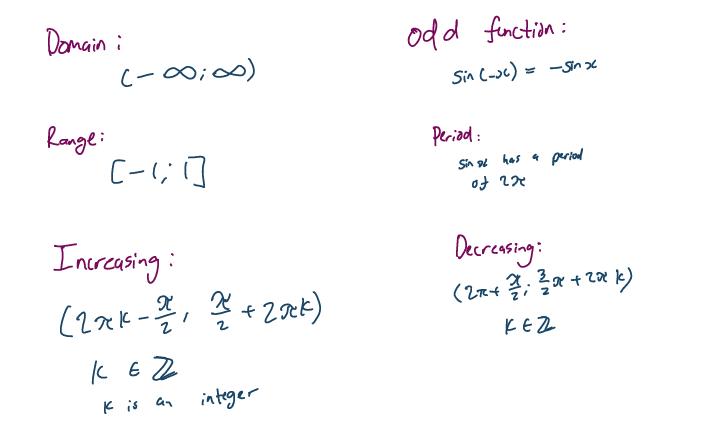 Domain :
(-∞;∞)
Range:
[-1; 1]
Increasing :
(2πk-π/2, π/2+2πk)
k ∈ ℤ
k is an integer
odd function :
Sin(-x) = -Sin x
Period :
Sin x has a period
of 2π
Decreasing:
(2π+π/2; 3/2π+2πk)
k∈ℤ